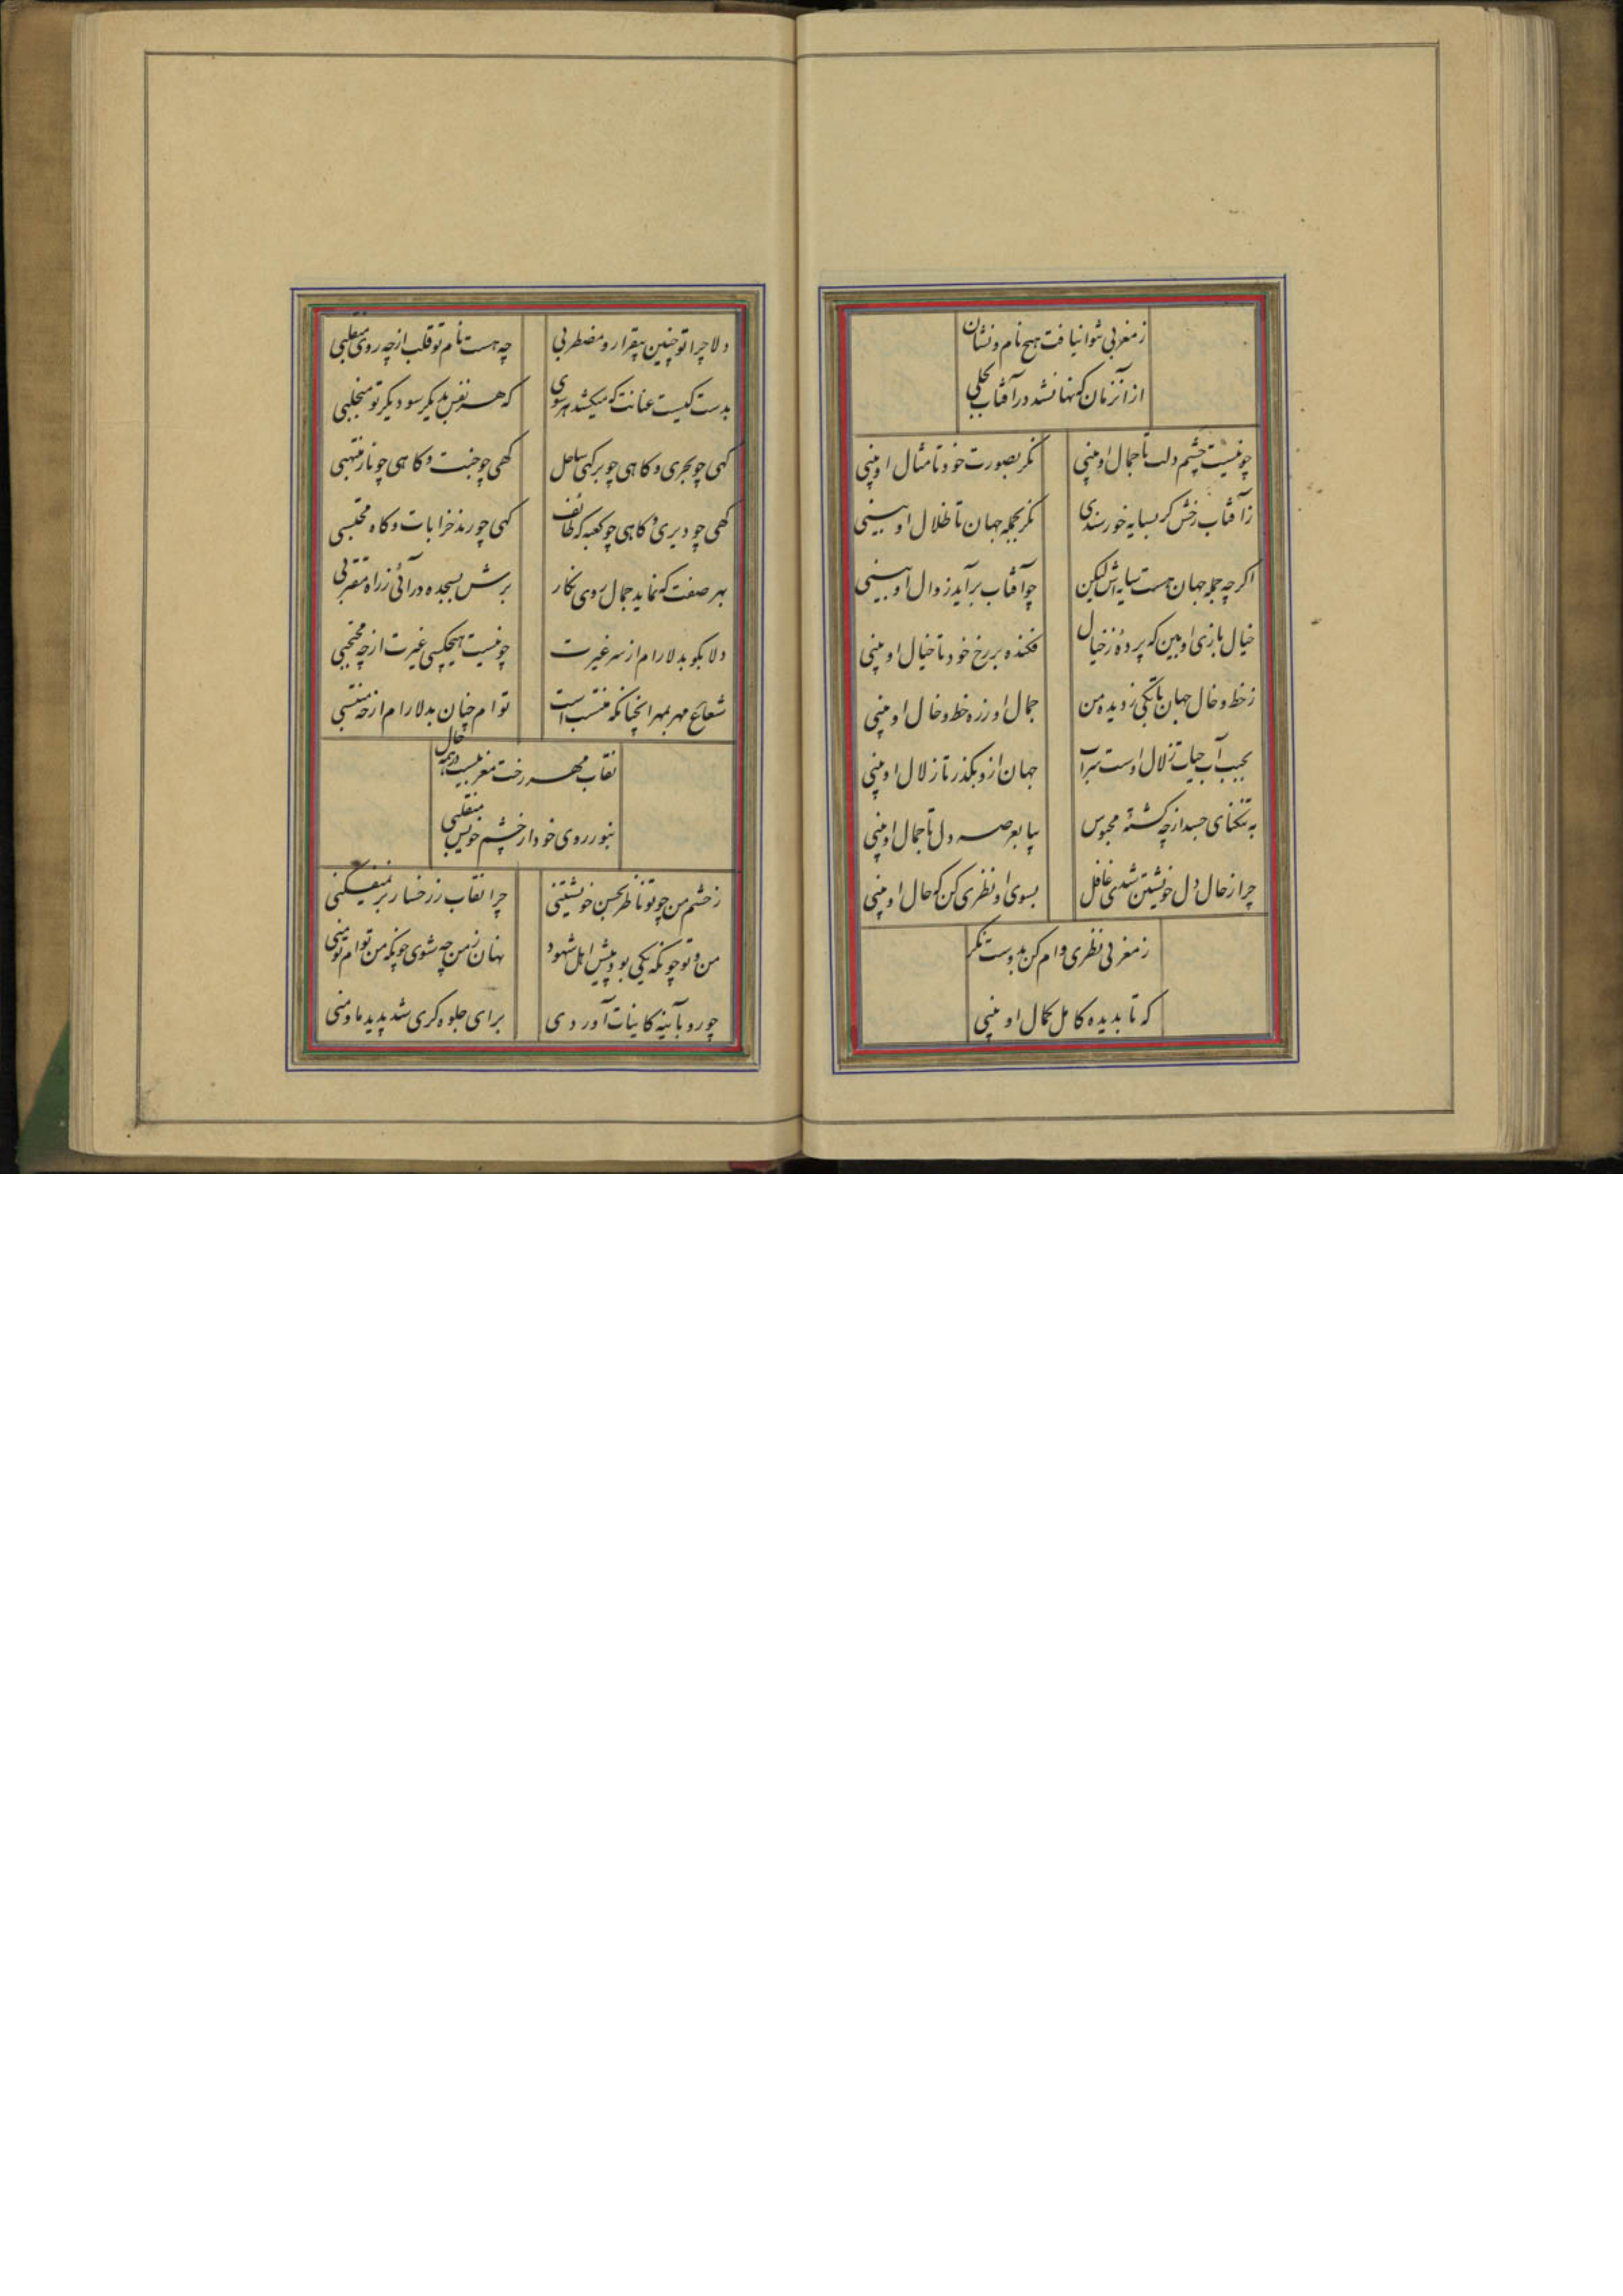 زمغربی نتوانیافت هیچ نام و نشان
ازآنزمان که نهانشد در آفتاب تجلی
چو نیست چشم دلت تا جمال او بینی
نکر بصورت خود تا مثال او بینی
زآفتاب رخش کر بسایه خورسندی
نکر بجمله جهان تا ظلال او ببینی
اکرچه جمله جهان هست سایه اش لیکن
چوآفتاب برآید زوال او ببینی
خیال بازی او بین که پردهٔ زخیال
فکنده بر رخ خود تا خیال او بینی
زخط و خال جهان زدیده من
جمال او زره خط و خال او بینی
آب حیات زلال اوست
جهان ازو بکذر تا زلال او بینی
به تنکنای جسد ازچه کشتهٔ محبوس
بیا بعرصه دل تا جمال او بینی
چرا زحال دل خویشتن شدی غافل
بسوی او نظری کن که حال او بینی
زمغربی نظری وام کن بدوست نکر
که تا بدیده کامل کمال او بینی
دلا چرا تو چنین بیقرار و مضطربی
چه هست نام تو قلب ازچه روی منقلبی
بدست کیست عنانت که میکشد هرسوی
که هر نفس بدیکر سو دیکر تو منجلبی
کهی چو بحری و کاهی چو بر کهی ساحل
کهی چو جنت و کاهی چو نار ملتهبی
کهی چو دیری و کاهی چو کعبه که طائف
کهی چو رند خرابات و کاه محتسبی
بهر صفت که نماید جمال روی نکار
برش بسجده درآئی زراه مقتربی
دلا بکو بدلارام از سر غیرت
چو نیست هیچکسی غیرت ازچه محتجبی
شعاع مهر بمهر انچنانکه منتسب است
توام چنان بدلارام ازچه منتسبی
نقاب مهر رخت مغربیست درهمه حال
بنور روی خود از چشم خویش منتقبی
زچشم من چو تو ناظر بحسن خویشتنی
چرا نقاب زرخسار بر نمیفکنی
من و تو چونکه یکی بود پیش اهل شهود
نهان زمن چه شوی چونکه من توام تو منی
چو رو بآینه کاینات آوردی
برای جلوه کری شد پدید ما و منی